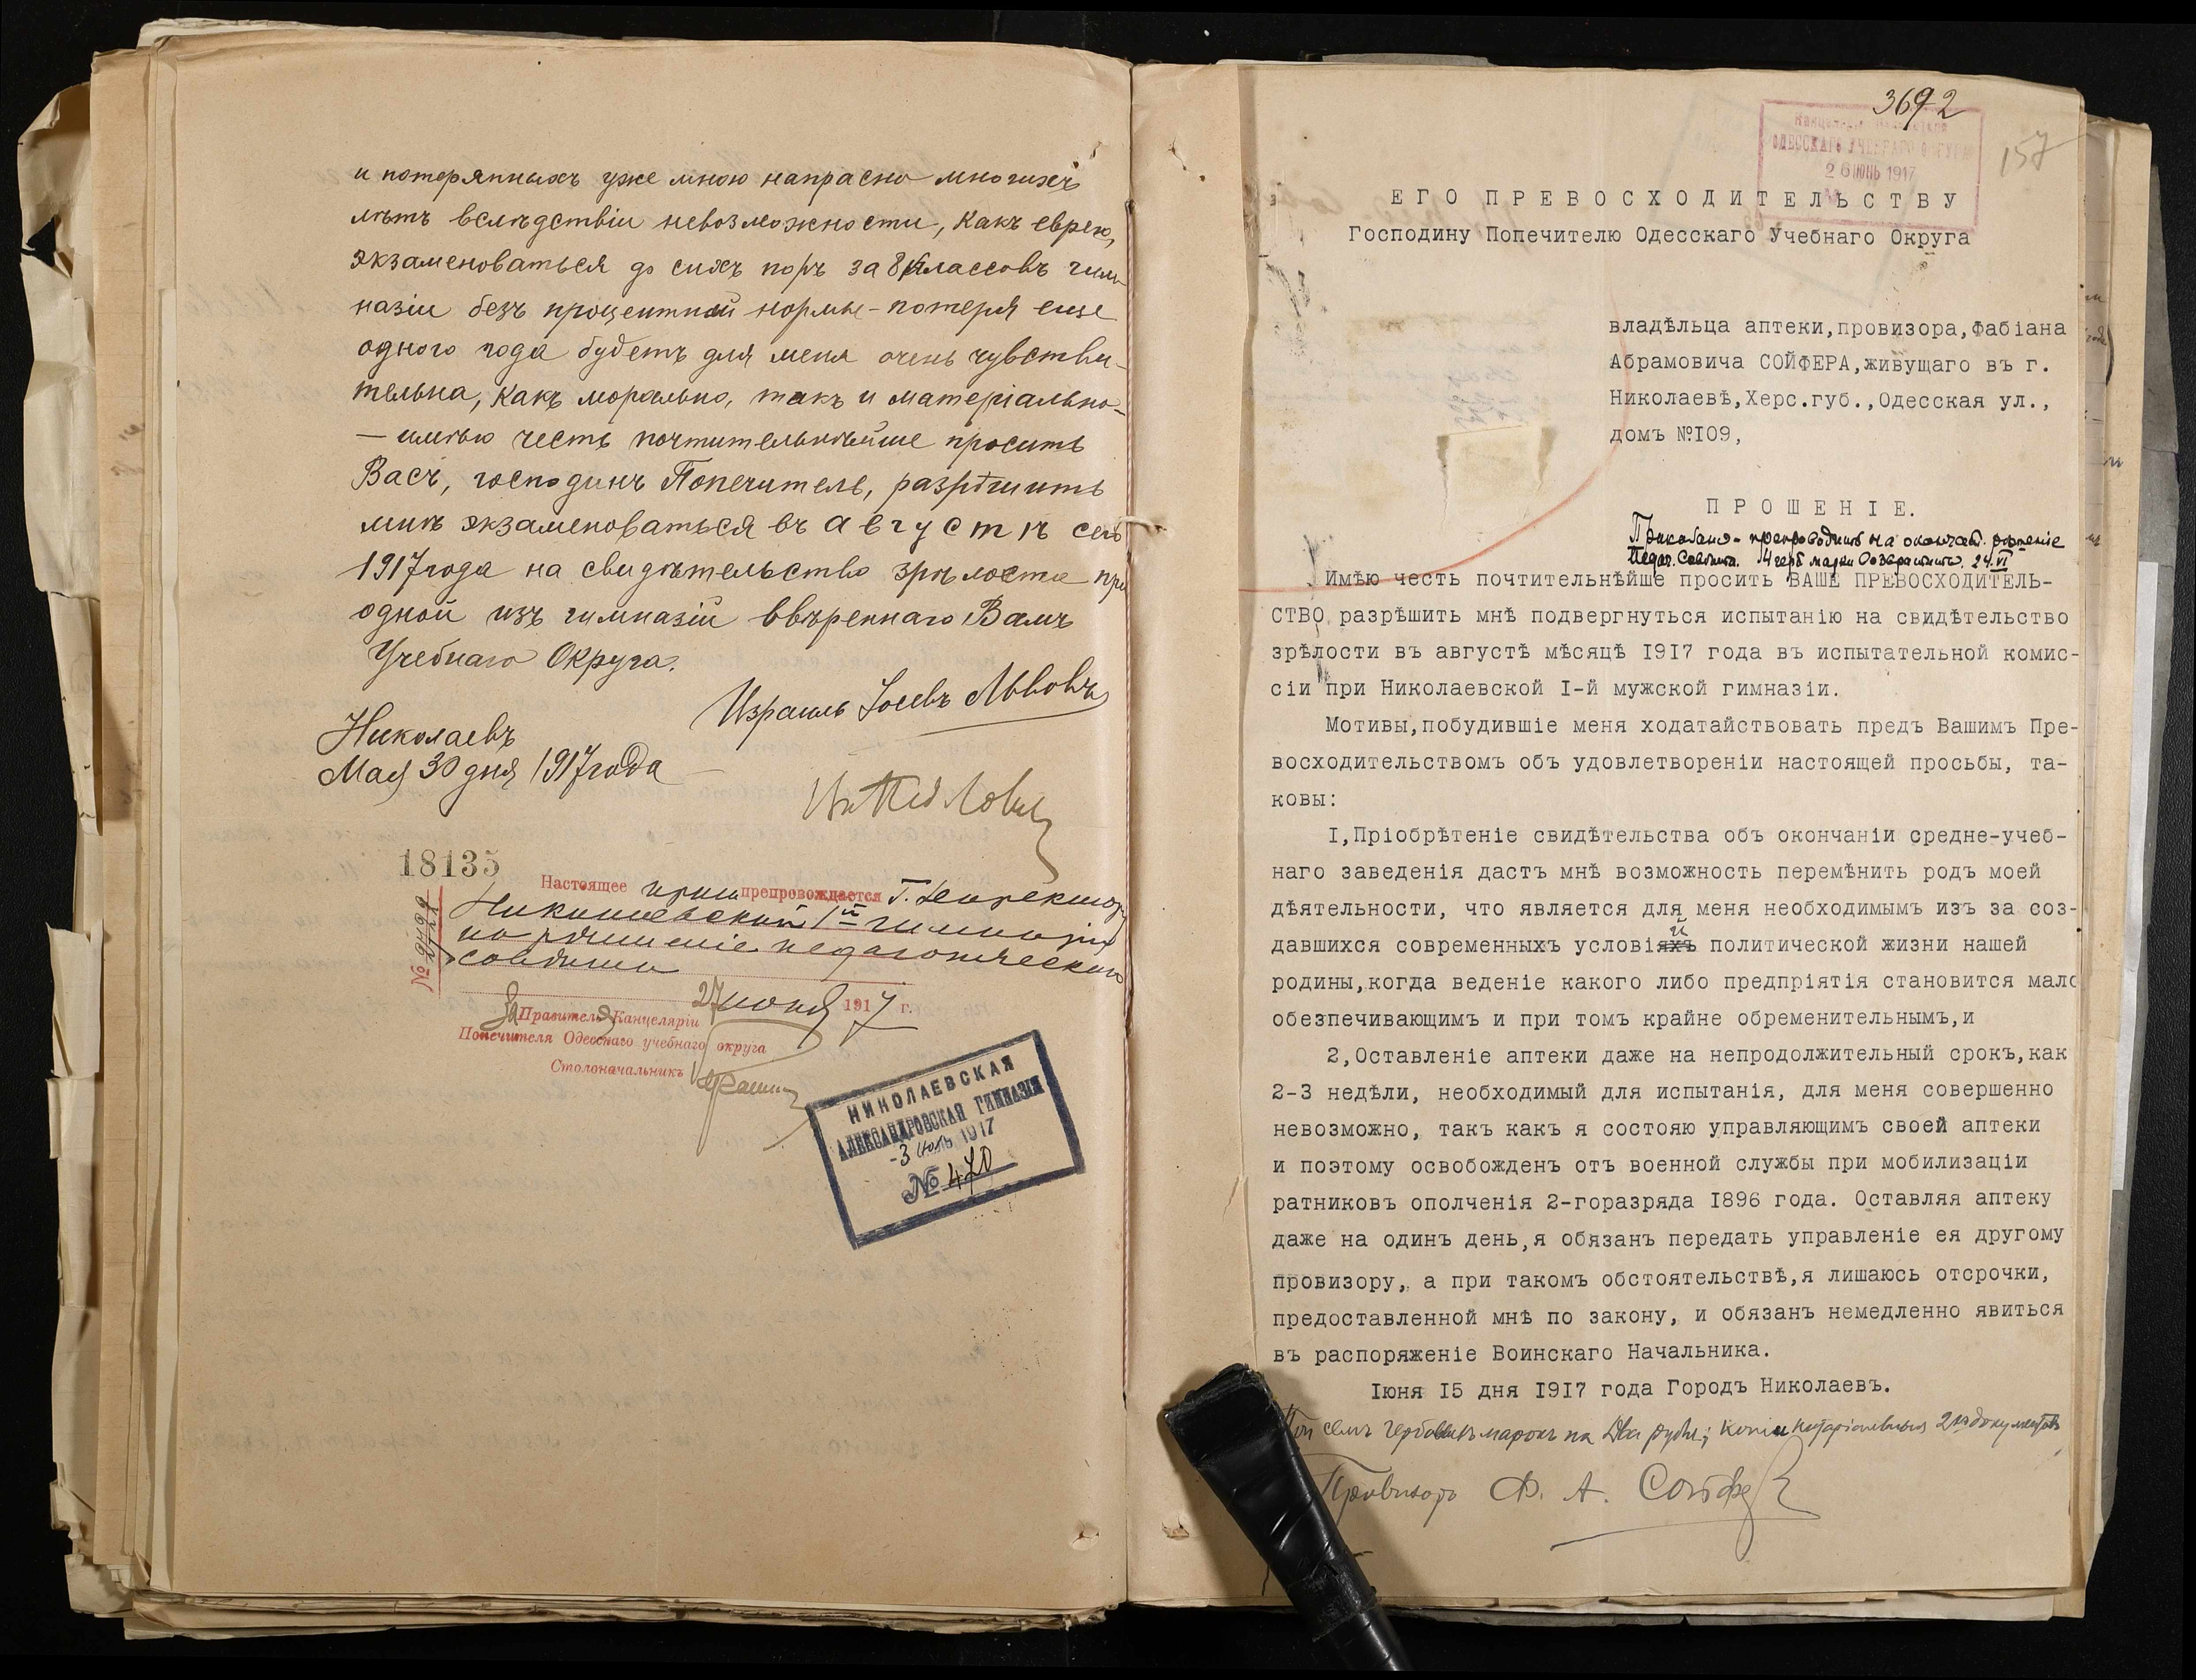 и потерянныхъ уже мною напрасно многихъ
лѣтъ вслѣдствіи невозможности, какъ еврею,
экзаменоваться до сихъ поръ за 8 классовъ гим-
назіи безъ процентной нормы - потеря еще
одного года будетъ для меня очень чувстви-
тельна, какъ морально, такъ и матеріально-
— имѣю честь почтительнѣйше просить
Васъ, господинъ Попечитель, разрѣшить
мнѣ экзаменоваться въ августѣ сего
1917 года на свидѣтельство зрѣлости при
одной изъ гимназій ввѣреннаго Вамъ
Учебнаго Округа.
Израиль Іосевъ Львовъ
Николаевъ
Мая 30 дня 1917 года
18135
Настоящее прош препровождается Г. Директору
Николаевской 1й гимназіи
на рѣшеніе педагогическаго
совѣта
27 іюня 1917 г.
За Правителя Канцеляріи
Попечителя Одесскаго учебнаго округа
Столоначальникъ
НИКОЛАЕВСКАЯ
АЛЕКСАНДРОВСКАЯ ГИМНАЗІЯ
-3 июль 1917
№ 470
3692
157
Канцелярія
ОДЕССКАГО УЧЕБНАГО ОКРУГА
26 ІЮНЬ 1917
ЕГО ПРЕВОСХОДИТЕЛЬСТВУ
Господину Попечителю Одесскаго Учебнаго Округа
владѣльца аптеки,провизора,Фабіана
Абрамовича СОЙФЕРА,живущаго въ г.
Николаевѣ,Херс.губ.,Одесская ул.,
домъ №I09,
ПРОШЕНІЕ.
препроводить на окончат. рѣшеніе
Педаг. Совѣта. 4 герб марки возвратить. 24.VI
Имѣю честь почтительнѣйше просить ВАШЕ ПРЕВОСХОДИТЕЛЬ-
СТВО разрѣшить мнѣ подвергнуться испытанію на свидѣтельство
зрѣлости въ августѣ мѣсяцѣ I9I7 года въ испытательной комис-
сіи при Николаевской I-й мужской гимназіи.
Мотивы,побудившіе меня ходатайствовать предъ Вашимъ Пре-
восходительствомъ объ удовлетвореніи настоящей просьбы, та-
ковы:
I,Пріобрѣтеніе свидѣтельства объ окончаніи средне-учеб-
наго заведенія дастъ мнѣ возможность перемѣнить родъ моей
дѣятельности, что является для меня необходимымъ изъ за соз-
давшихся современныхъ условій политической жизни нашей
родины,когда веденіе какого либо предпріятія становится мало
обезпечивающимъ и при томъ крайне обременительнымъ,и
2,Оставленіе аптеки даже на непродолжительный срокъ,как
2-3 недѣли, необходимый для испытанія, для меня совершенно
невозможно, такъ какъ я состою управляющимъ своей аптеки
и поэтому освобожденъ отъ военной службы при мобилизаціи
ратниковъ ополченія 2-горазряда I896 года. Оставляя аптеку
даже на одинъ день,я обязанъ передать управленіе ея другому
провизору, а при такомъ обстоятельствѣ,я лишаюсь отсрочки,
предоставленной мнѣ по закону, и обязанъ немедленно явиться
въ распоряженіе Воинскаго Начальника.
Іюня I5 дня I9I7 года Городъ Николаевъ.
При семъ гербовыхъ марокъ на два рубл.; копіи нотаріальныя 2хъ документовъ
Провизоръ Ф. А. Сойфер